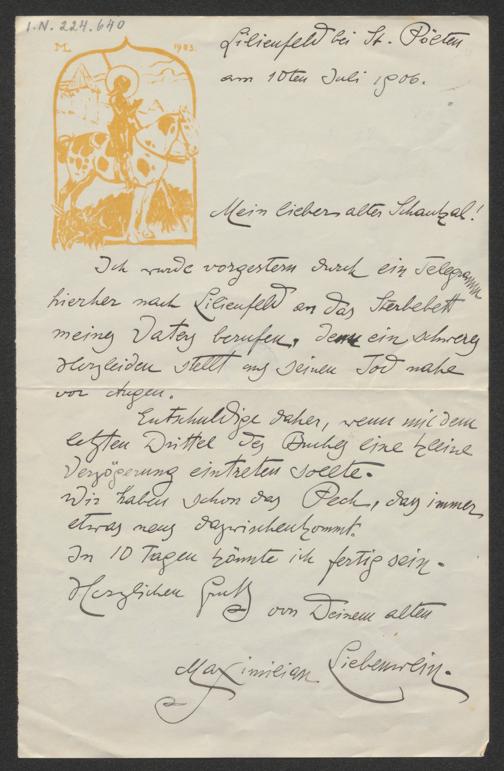 I.N. 224.640
ML 1903.
Lilienfeld bei St. Pölten
am 10ten Juli 1906.
Mein lieber alter Schaukal!
Ich wurde vorgestern durch ein Telegramm
hierher nach Lilienfeld an das Sterbebett
meines Vaters berufen, denn ein schweres
Herzleiden stellt uns seinen Tod nahe
vor Augen.
Entschuldige daher, wenn mit dem
letzten Drittel des Buches eine kleine
Verzögerung eintreten sollte.
Wir haben schon das Pech, dass immer
etwas neues dazwischenkommt.
In 10 Tagen könnte ich fertig sein.
Herzlichen Gruß
von Deinem alten
Maximilian Liebenwein.